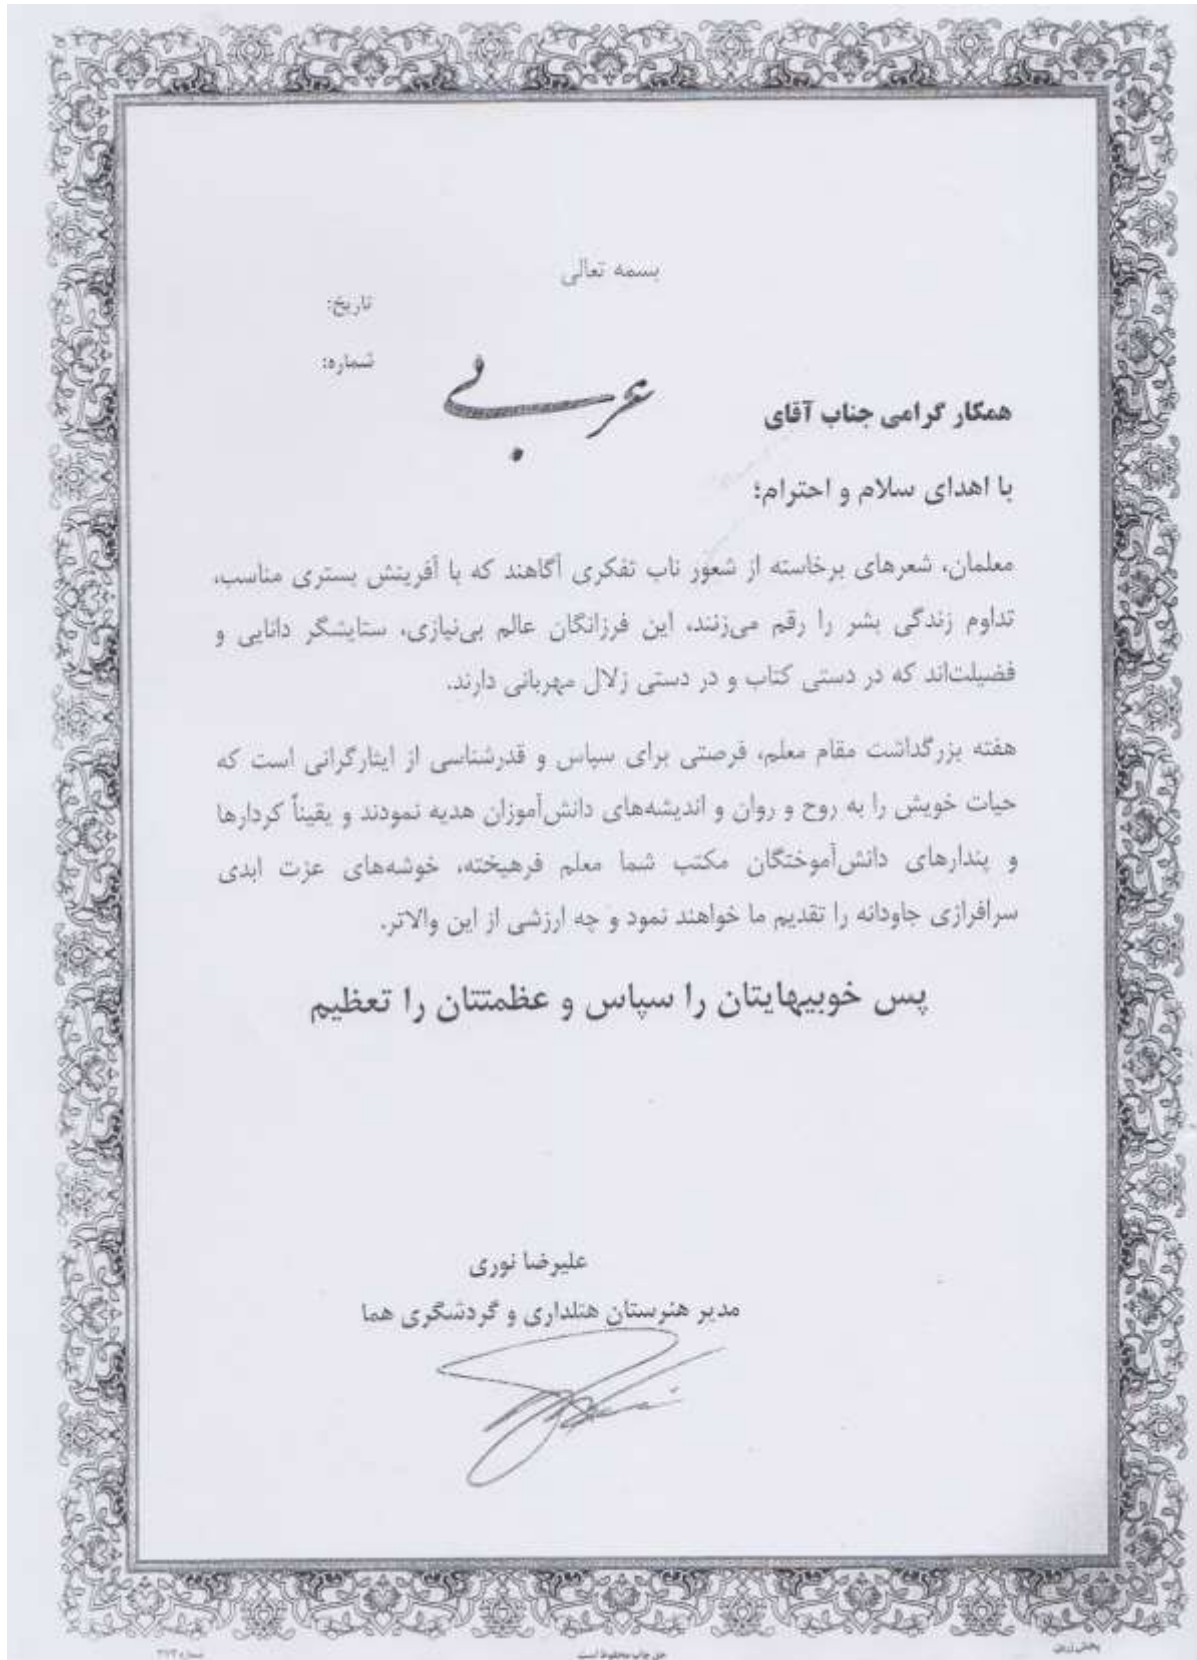 بسمه تعالی
تاریخ:
شماره:
همکار گرامی جناب آقای عربی
با اهدای سلام و احترام؛
معلمان، شعرهای برخاسته از شعور ناب تفکری آگاهند که با آفرینش بستری مناسب،
تداوم زندگی بشر را رقم می‌زنند، این فرزانگان عالم بی‌نیازی، ستایشگر دانایی و
فضیلت‌اند که در دستی کتاب و در دستی زلال مهربانی دارند.
هفته بزرگداشت مقام معلم، فرصتی برای سپاس و قدرشناسی از ایثارگرانی است که
حیات خویش را به روح و روان و اندیشه‌های دانش‌آموزان هدیه نمودند و یقیناً کردارها
و پندارهای دانش‌آموختگان مکتب شما معلم فرهیخته، خوشه‌های عزت ابدی
سرافرازی جاودانه را تقدیم ما خواهند نمود و چه ارزشی از این والاتر.
پس خوبیهایتان را سپاس و عظمتتان را تعظیم
علیرضا نوری
مدیر هنرستان هتلداری و گردشگری هما
پخش زرین
حق چاپ محفوظ است